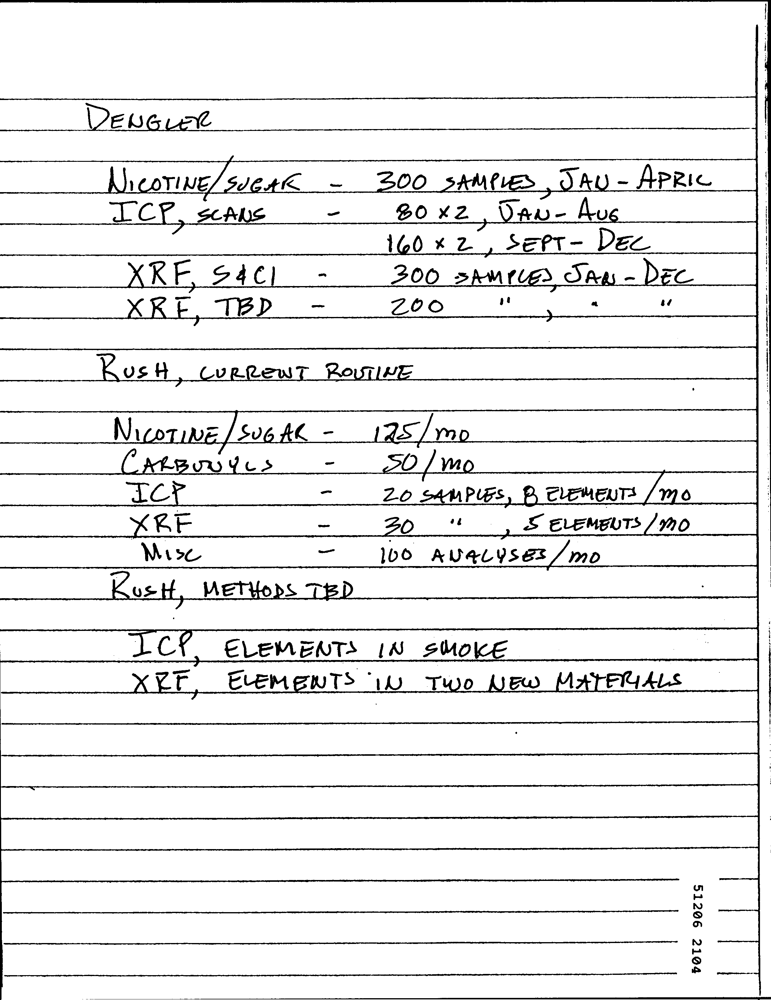 DENGLER
NICOTINE/SUGAR - 300 SAMPLES, JAN - APRIL
ICP, SCANS - 80 x 2, JAN - AUG
160 x 2, SEPT - DEC
XRF, S&Cl - 300 SAMPLES, JAN - DEC
XRF, TBD - 200 " , " "
RUSH, CURRENT ROUTINE
NICOTINE/SUGAR - 125/mo
CARBONYLS - 50/mo
ICP - 20 SAMPLES, 8 ELEMENTS/mo
XRF - 30 " , 5 ELEMENTS/mo
MISC - 100 ANALYSES/mo
RUSH, METHODS TBD
ICP, ELEMENTS IN SMOKE
XRF, ELEMENTS IN TWO NEW MATERIALS
51206 2104